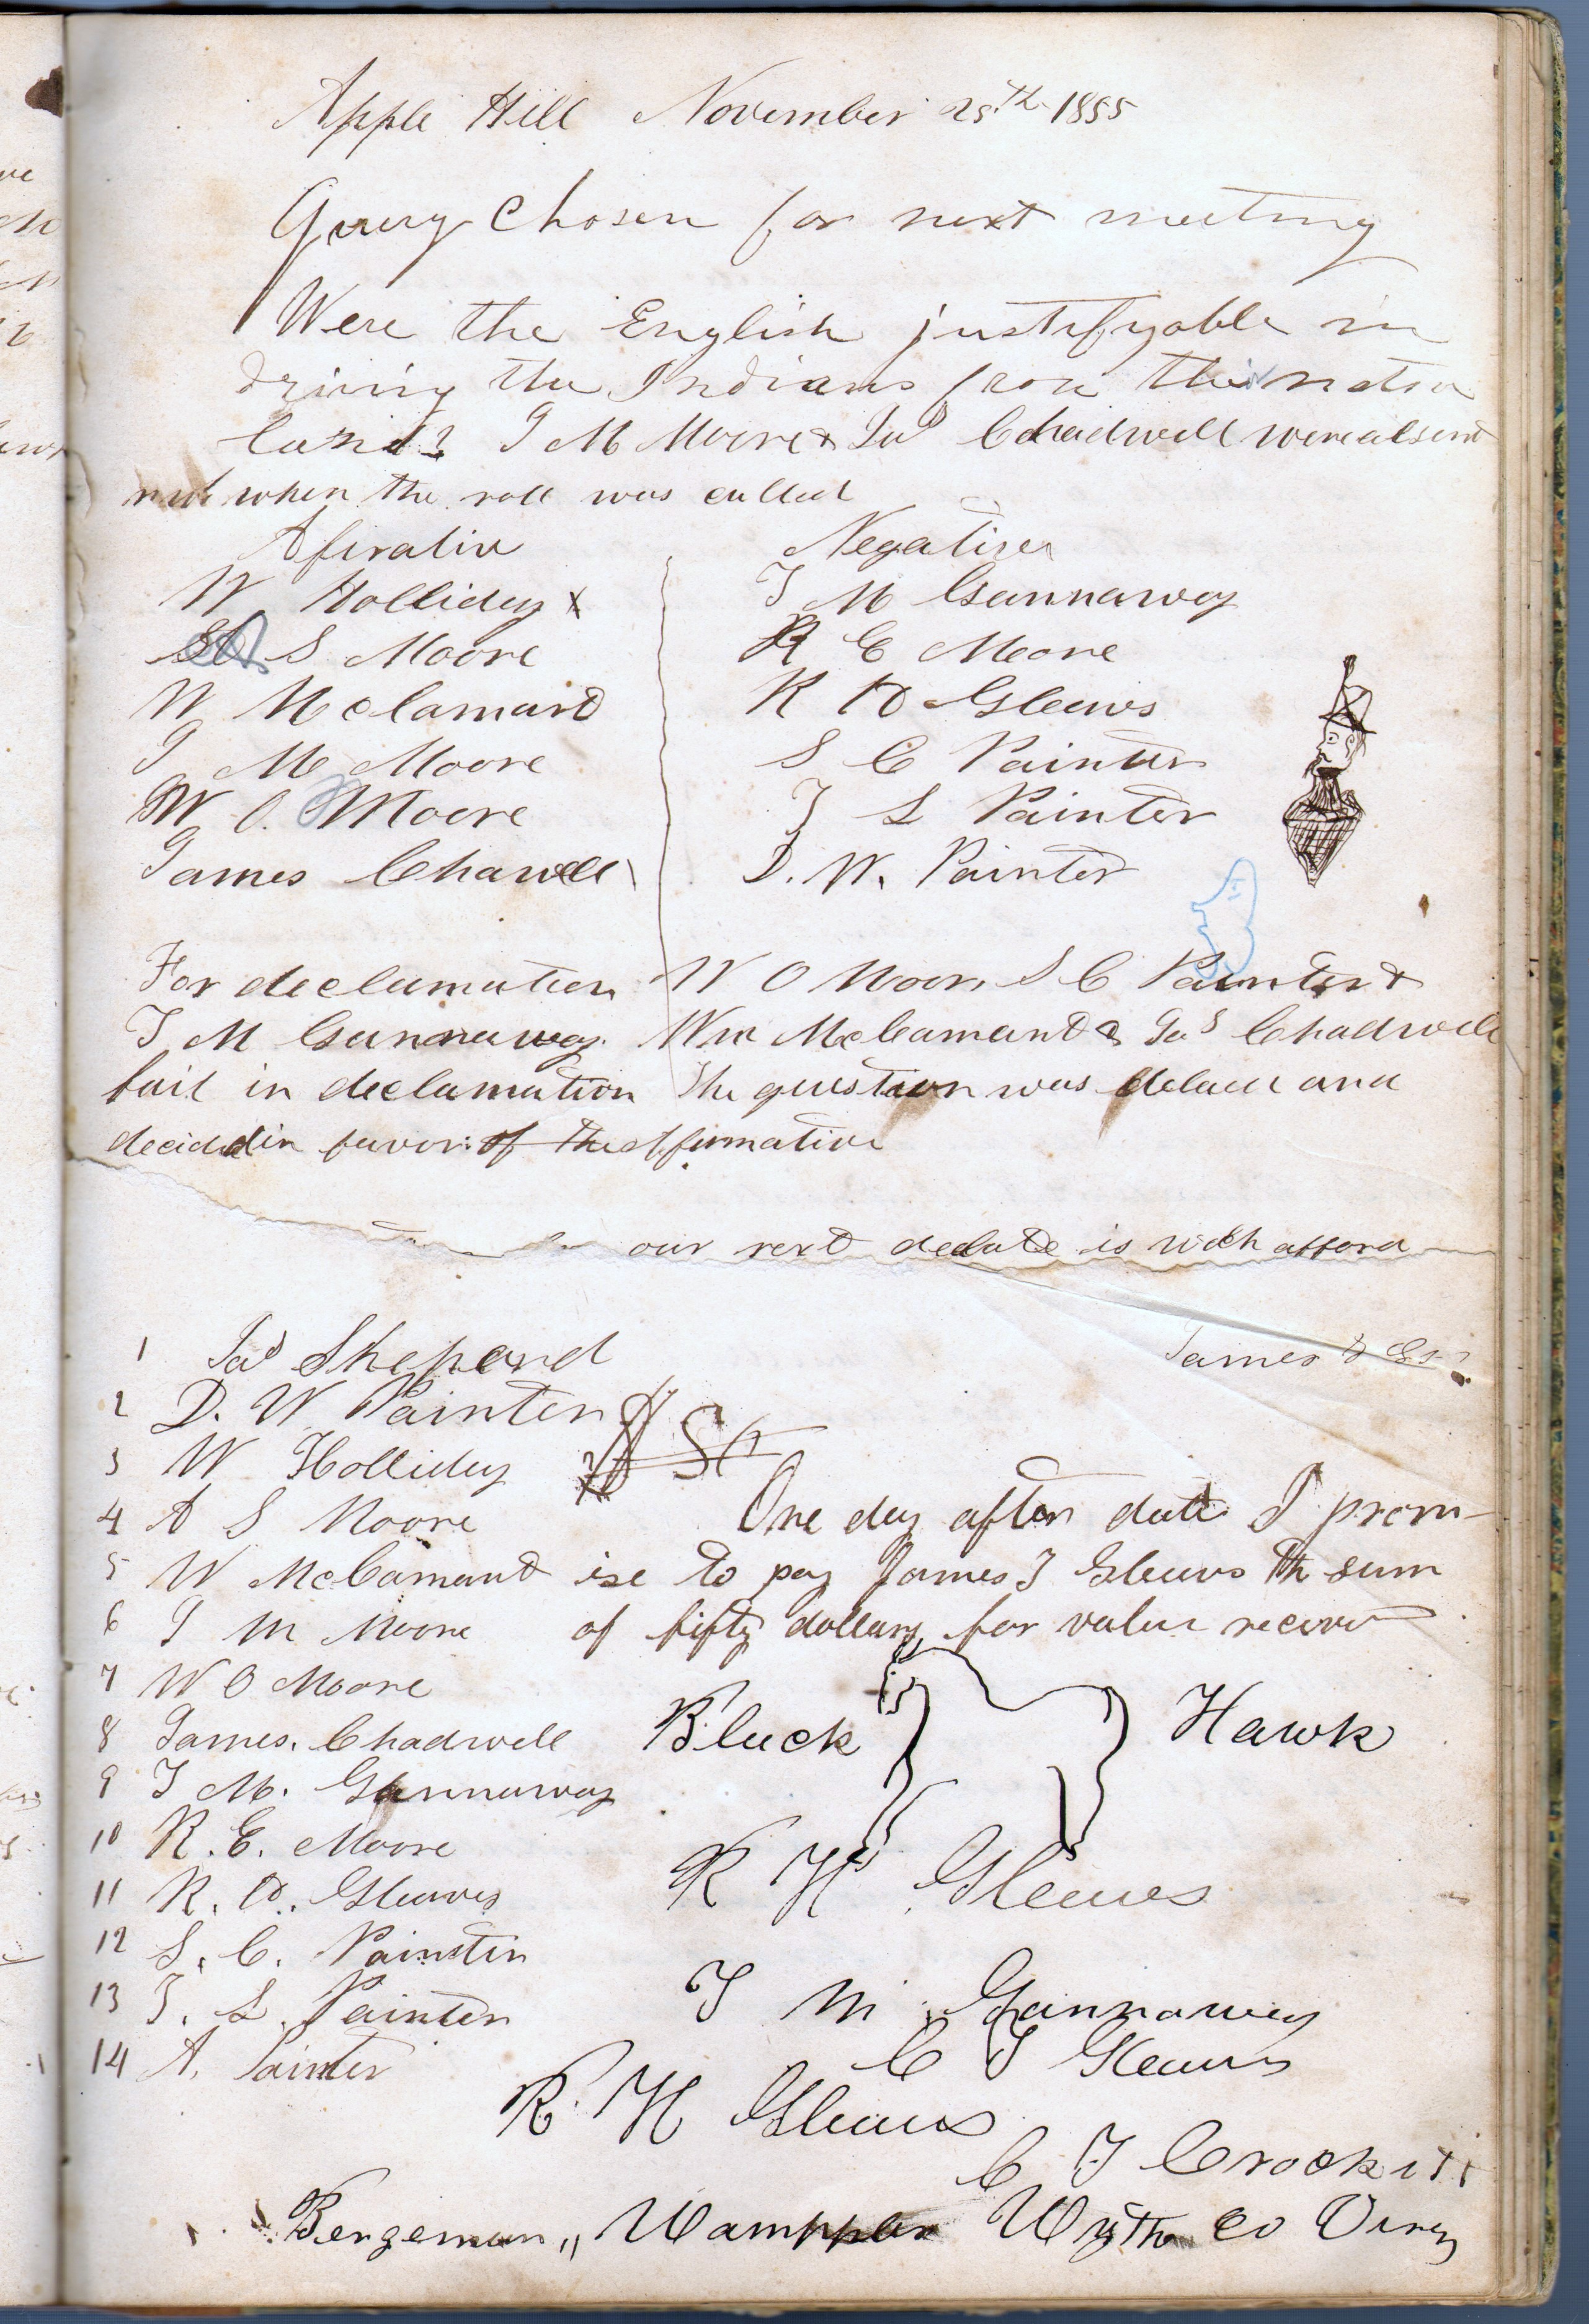 Apple Hill November 25th 1855
Query Chosen for next meeting
Were the English justifyable in
driving the Indians from their nativ
land? J M Moore & Jas Chadwell were absent
when the roll was called
Afirativ Negative
W Holliday x J M Gannaway
A S Moore R E Moore
W McCamant R H Gleaves
J M Moore S C Painter
W O. Moore J L Painter
James Chawell D. W. Painter
For declamation W O Moore S C Painter &
J M Gannaway. Wm McCamant & Jas Chadwell
fail in declamation The question was debate and
decided in favor of the affirmative
our next debate is with afford
James
1 Jas Shepard
2 D. W Painter
3 W Holliday
4 A S Moore One day after date I prom-
5 W McCamant ise to pay James J Gleaves the sum
6 J M Moore of fifty dollars for value receive
7 W O Moore
8 James. Chadwell Black Hawk
9 J M. Gannaway
10 R. E. Moore
11 R. H. Gleaves R H Gleaves
12 S. C. Painter
13 J. L. Painter J M Gannaway
14 A. Painter C J Gleaves
R. H Gleaves
C J Crockett
Bergeman,, Wamppler Wythe co Virg